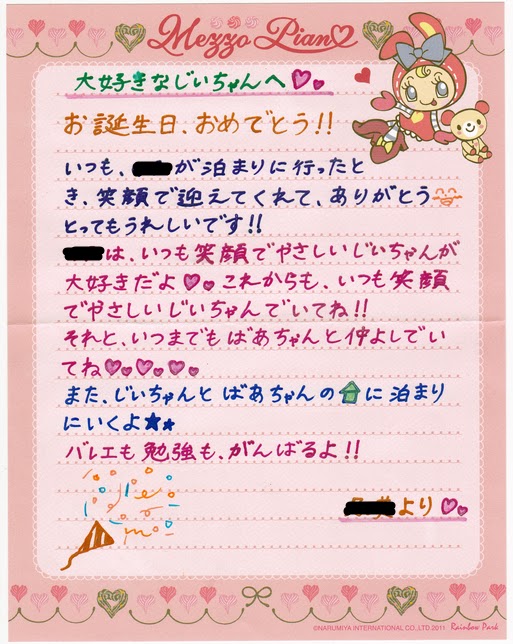 Mezzo Piano
大好きなじいちゃんへ
お誕生日、おめでとう!!
いつも、が泊まりに行ったと
き、笑顔で迎えてくれて、ありがとう
とってもうれしいです!!
は、いつも笑顔でやさしいじいちゃんが
大好きだよ♡♡これからも、いつも笑顔
でやさしいじいちゃんでいてね!!
それと、いつまでもばあちゃんと仲よしでい
てね♡♡♡♡♡
また、じいちゃんとばあちゃんのに泊まり
にいくよ★★
バレエも勉強も、がんばるよ!!
より♡♡
©NARUMIYA INTERNATIONAL CO.,LTD 2011 Rainbow Park